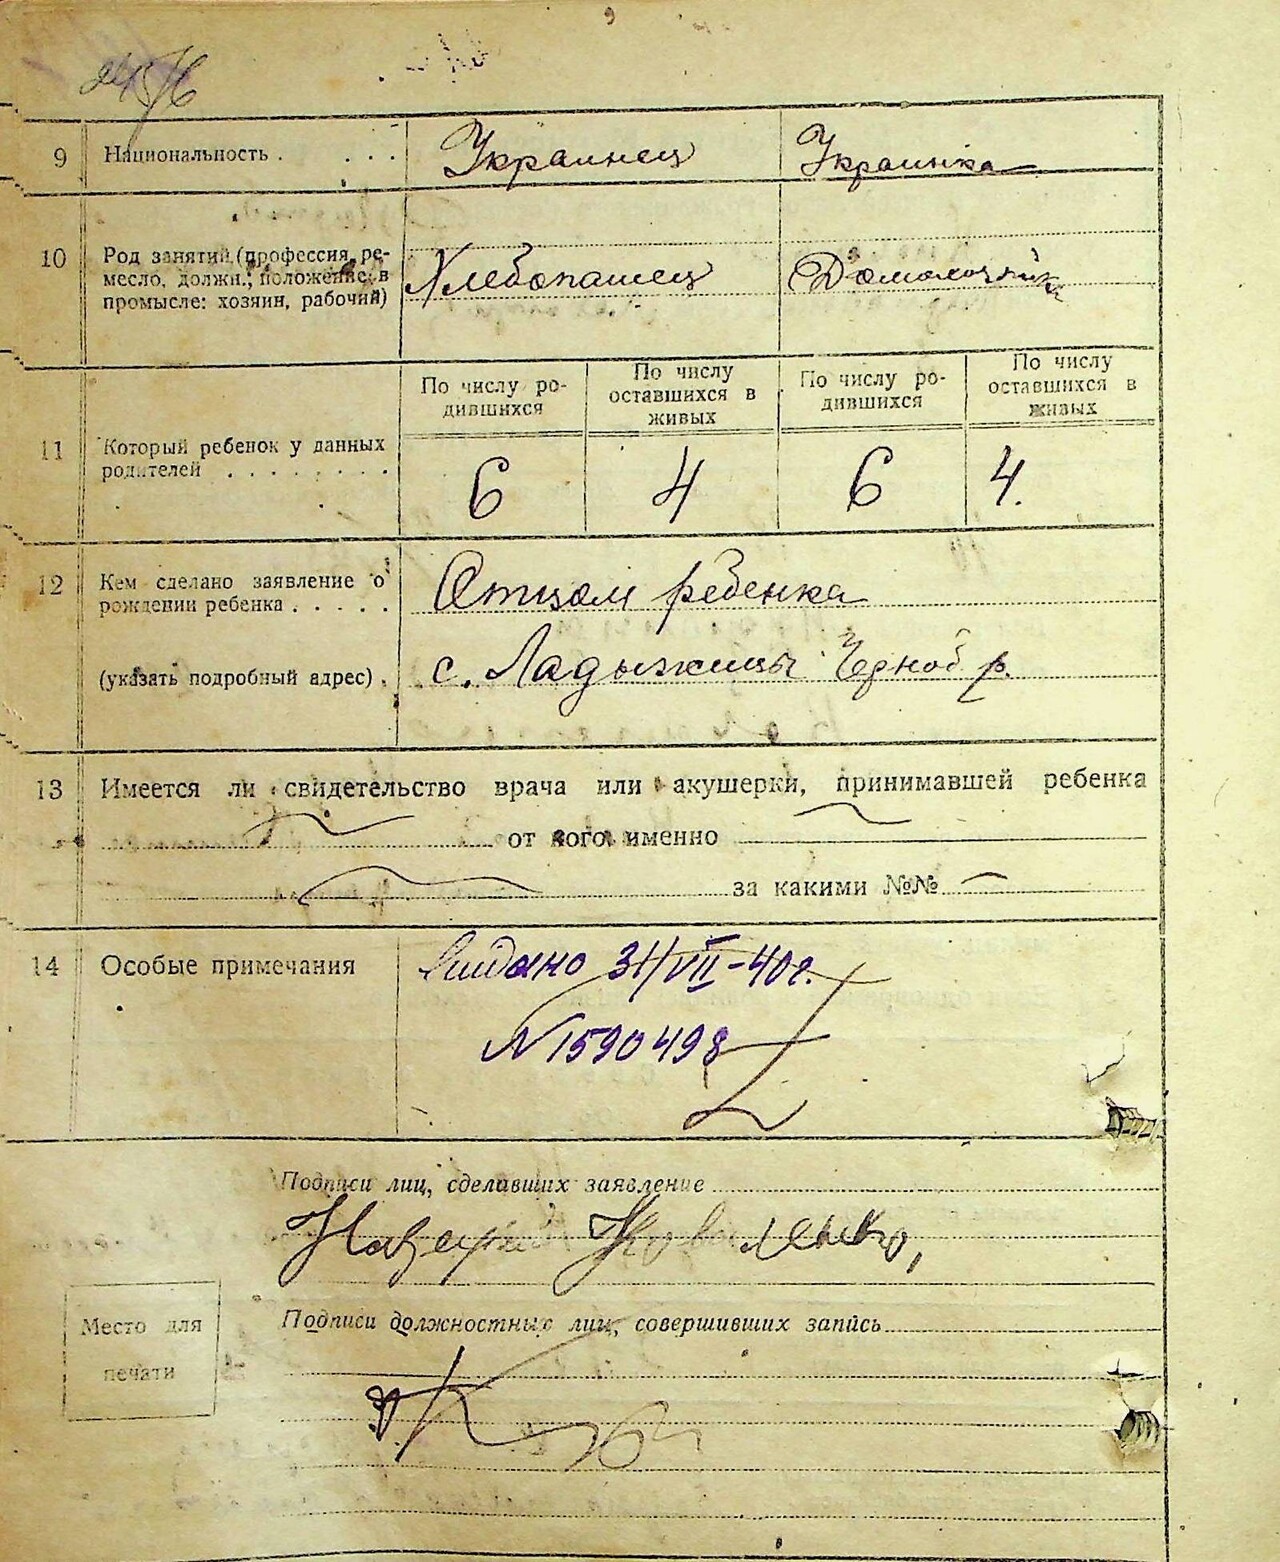 9 Национальность . . . . Украинец Украинка
10 Род занятий (профессия, ре-
месло, должн., положение в
промысле: хозяин, рабочий)
Хлебопашец Домохозяйка
По числу ро-
дившихся
По числу
оставшихся в
живых
По числу ро-
дившихся
По числу
оставшихся в
живых
11 Который ребенок у данных
родителей . . . . . . . .
6 4 6 4.
12 Кем сделано заявление о
рождении ребенка . . . . .
Отцом ребенка
(указать подробный адрес) .
с. Ладыжицы Черноб. р.
13 Имеется ли свидетельство врача или акушерки, принимавшей ребенка
от кого именно
за какими №№
14 Особые примечания
31/VII-40г.
N1590498
Подписи лиц, сделавших заявление
Коваленко,
Подписи должностных лиц, совершивших запись
Место для
печати